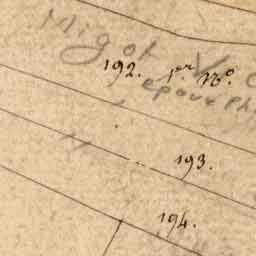 Migot V
192. 1er No.
epoux Ph
193.
194.